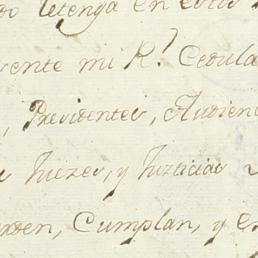 do tetenga en esto
vente mi R.l Cedula
, Presidentes, Audienc
Juezes, y Justicias
rden, Cumplan, y e